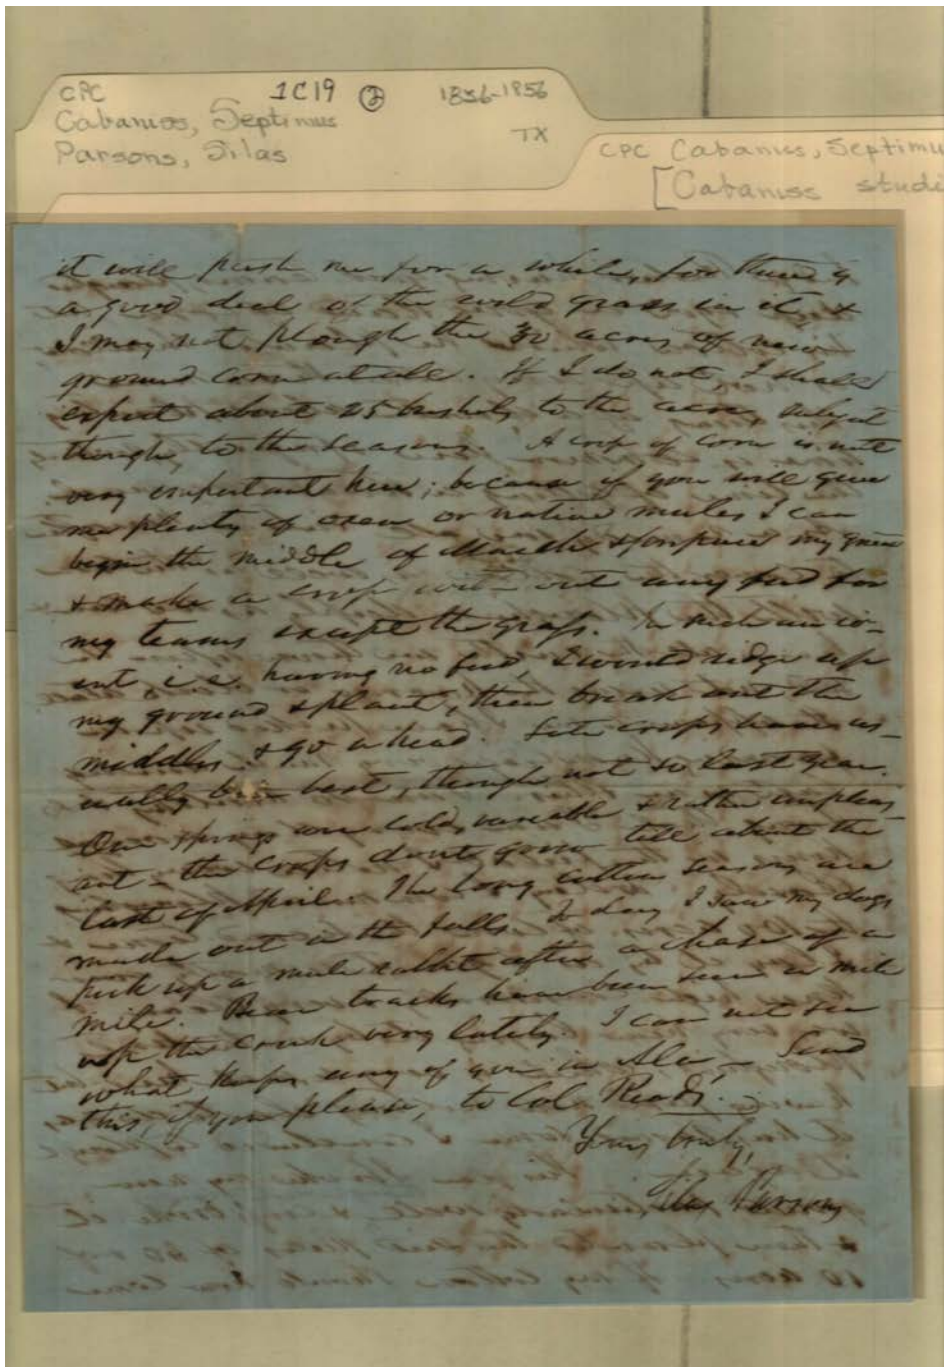 CPC 1C19 ② 1856-1856
Cabaniss, Septimus
TX
Parsons, Silas
CPC Cabaniss, Septimu
[Cabaniss studi
it will push me for a while, for there is
a good deal of the wild grass in it, &
I may not plough the 30 acres of new
ground corn at all. If I do not, I shall
expect about 25 bushels to the acre, subject
though, to the seasons. A crop of corn is not
very important here; because if you will give
me plenty of oxen or native mules I can
begin the middle of March & prepare my ground
& make a crop with out any feed for
my teams except the grass. In such an ev-
ent, i.e. having no feed, I would ridge up
my ground & plant, then break out the
middles & go ahead. Late crops have us-
ually been best, though not so last year.
Our springs are cold, variable & rather unpleas-
ant - the crops dont grow till about the
last of April. The long cotton seasons are
made out in the falls. To day I saw my dogs
pick up a mule rabbit after a chase of a
mile. Bear tracks have been seen a mile
up the creek very lately. I can not see
what keeps any of you in Ala. - Send
this, if you please, to Col Read.
Yours truly,
Silas Parsons